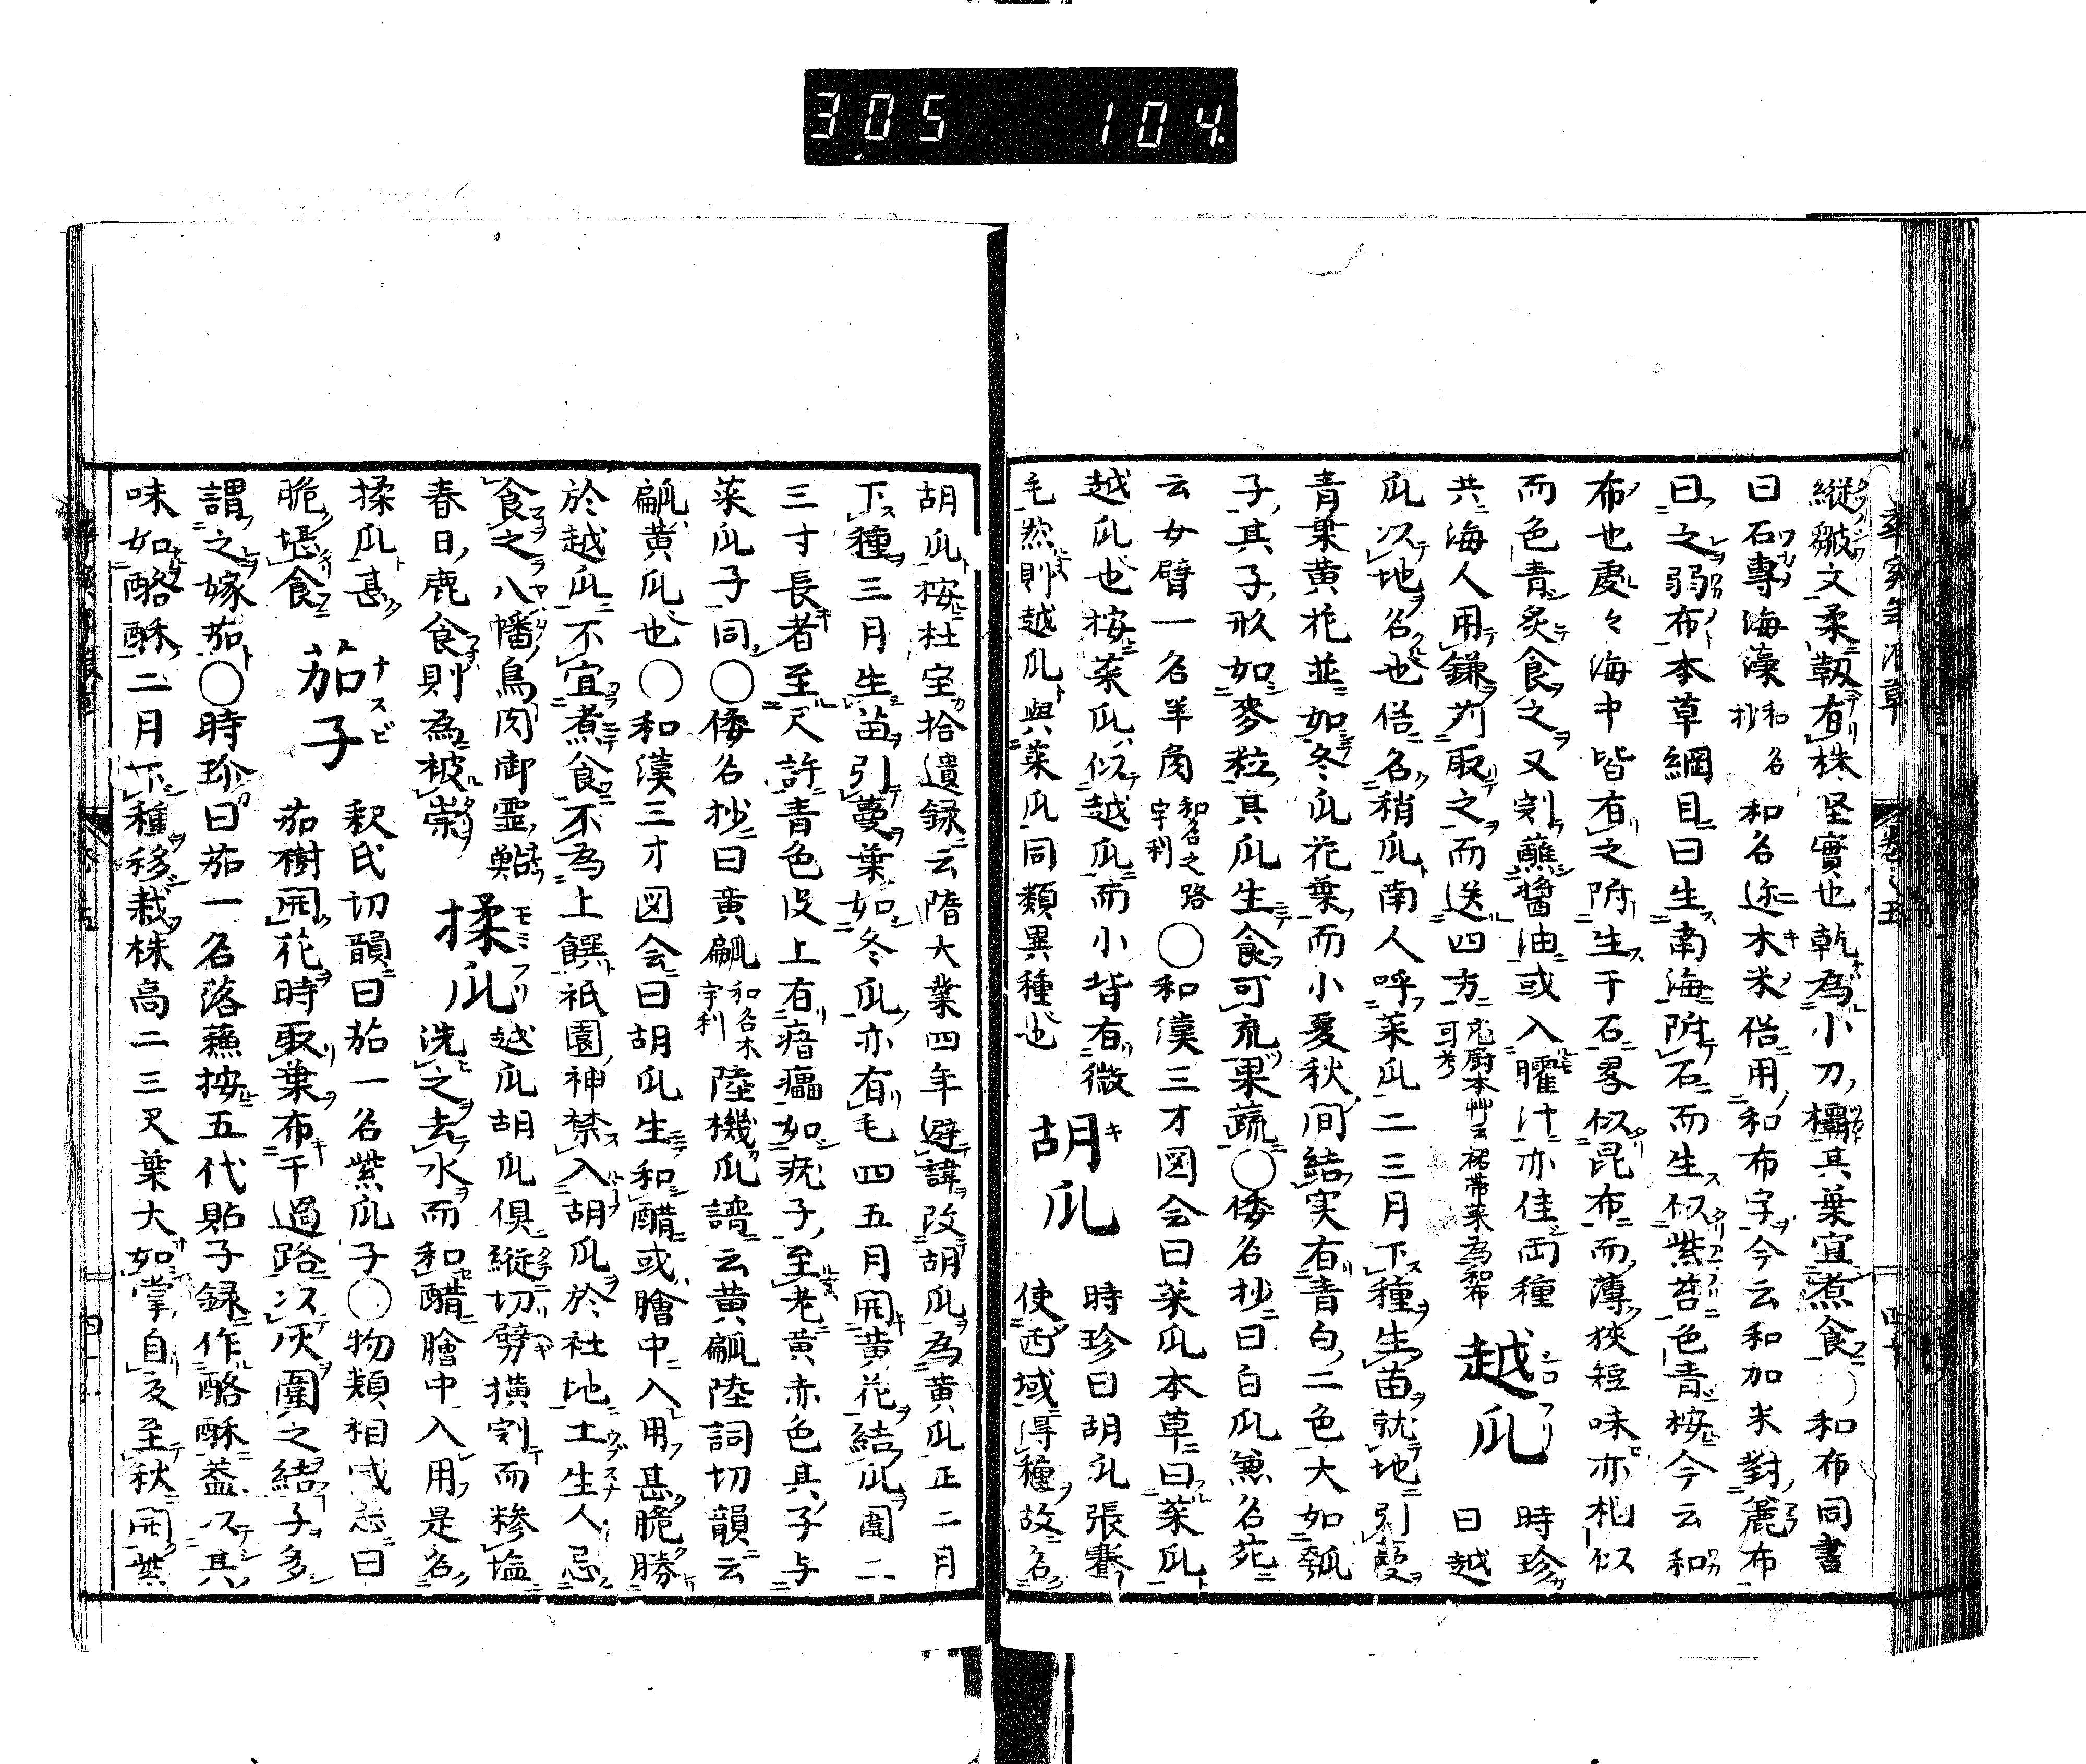 305 104
縦皺文柔靱有株坚實也乾為小刀欛其葉宜煮食〇和布同書
曰石蓴海藻和名抄和名迩木米俗用和布字今云和加米對麁布
曰之弱布本草綱目曰生南海附石而生似紫苔色青桉今云和
布也處々海中皆有之附生于石畧似昆布而薄狹短味亦札似
而色青炙食之又剉蘸醬油或入臛汁亦佳両種 越瓜 シロフリ 時珍
共海人用鎌刈取之而送四方庖厨本艸云裙帯菜為和布可考 曰越
瓜以地名也俗名稍瓜南人呼菜瓜二三月下種生苗就地引蔓
青葉黄花並如冬瓜花葉而小夏秋间結実有青白二色大如瓠
子其子形如麥粒其瓜生食可充果蔬〇倭名抄曰白瓜兼名苑
云女臂一名羊角和名之路宇利〇和漢三才図会曰菜瓜本草曰菜瓜
越瓜也桉菜瓜似越瓜而小皆有微 胡瓜 キ 時珍曰胡瓜張騫
毛然則越瓜與菜瓜同類異種也 使西域得種故名
胡瓜桉杜宝拾遺録云隋大業四年避諱改胡瓜為黄瓜正二月
下種三月生苗引蔓葉如冬瓜亦有毛四五月開黄花結瓜圍二
三寸長者至尺許青色皮上有㾦㿔如疣子至老黄赤色其子与
菜瓜子同〇倭名抄曰黄㼐和名木宇利陸機瓜譜云黄㼐陸詞切韻云
㼐黄瓜也〇和漢三才図会曰胡瓜生和醋或膾中入用甚脆勝
於越瓜不宜煮食不為上饌祇園神禁入胡瓜於社地土生人忌
食之八幡鳥肉御霊鯎 揉瓜 モミフリ 越瓜胡瓜倶縦切劈横剉而糝塩
春日鹿食則為被祟 洗之去水而和醋膾中入用是名
揉瓜甚 茄子 ナスビ 釈氏切韻曰茄一名紫瓜子〇物類相感志曰
脆堪食 茄樹開花時取葉布于過路以灰圍之結子多
謂之嫁茄〇時珍曰茄一名落蘓按五代貽子録作酪酥蓋以其
味如酪酥二月下種移栽株高二三尺葉大如掌自夏至秋開紫